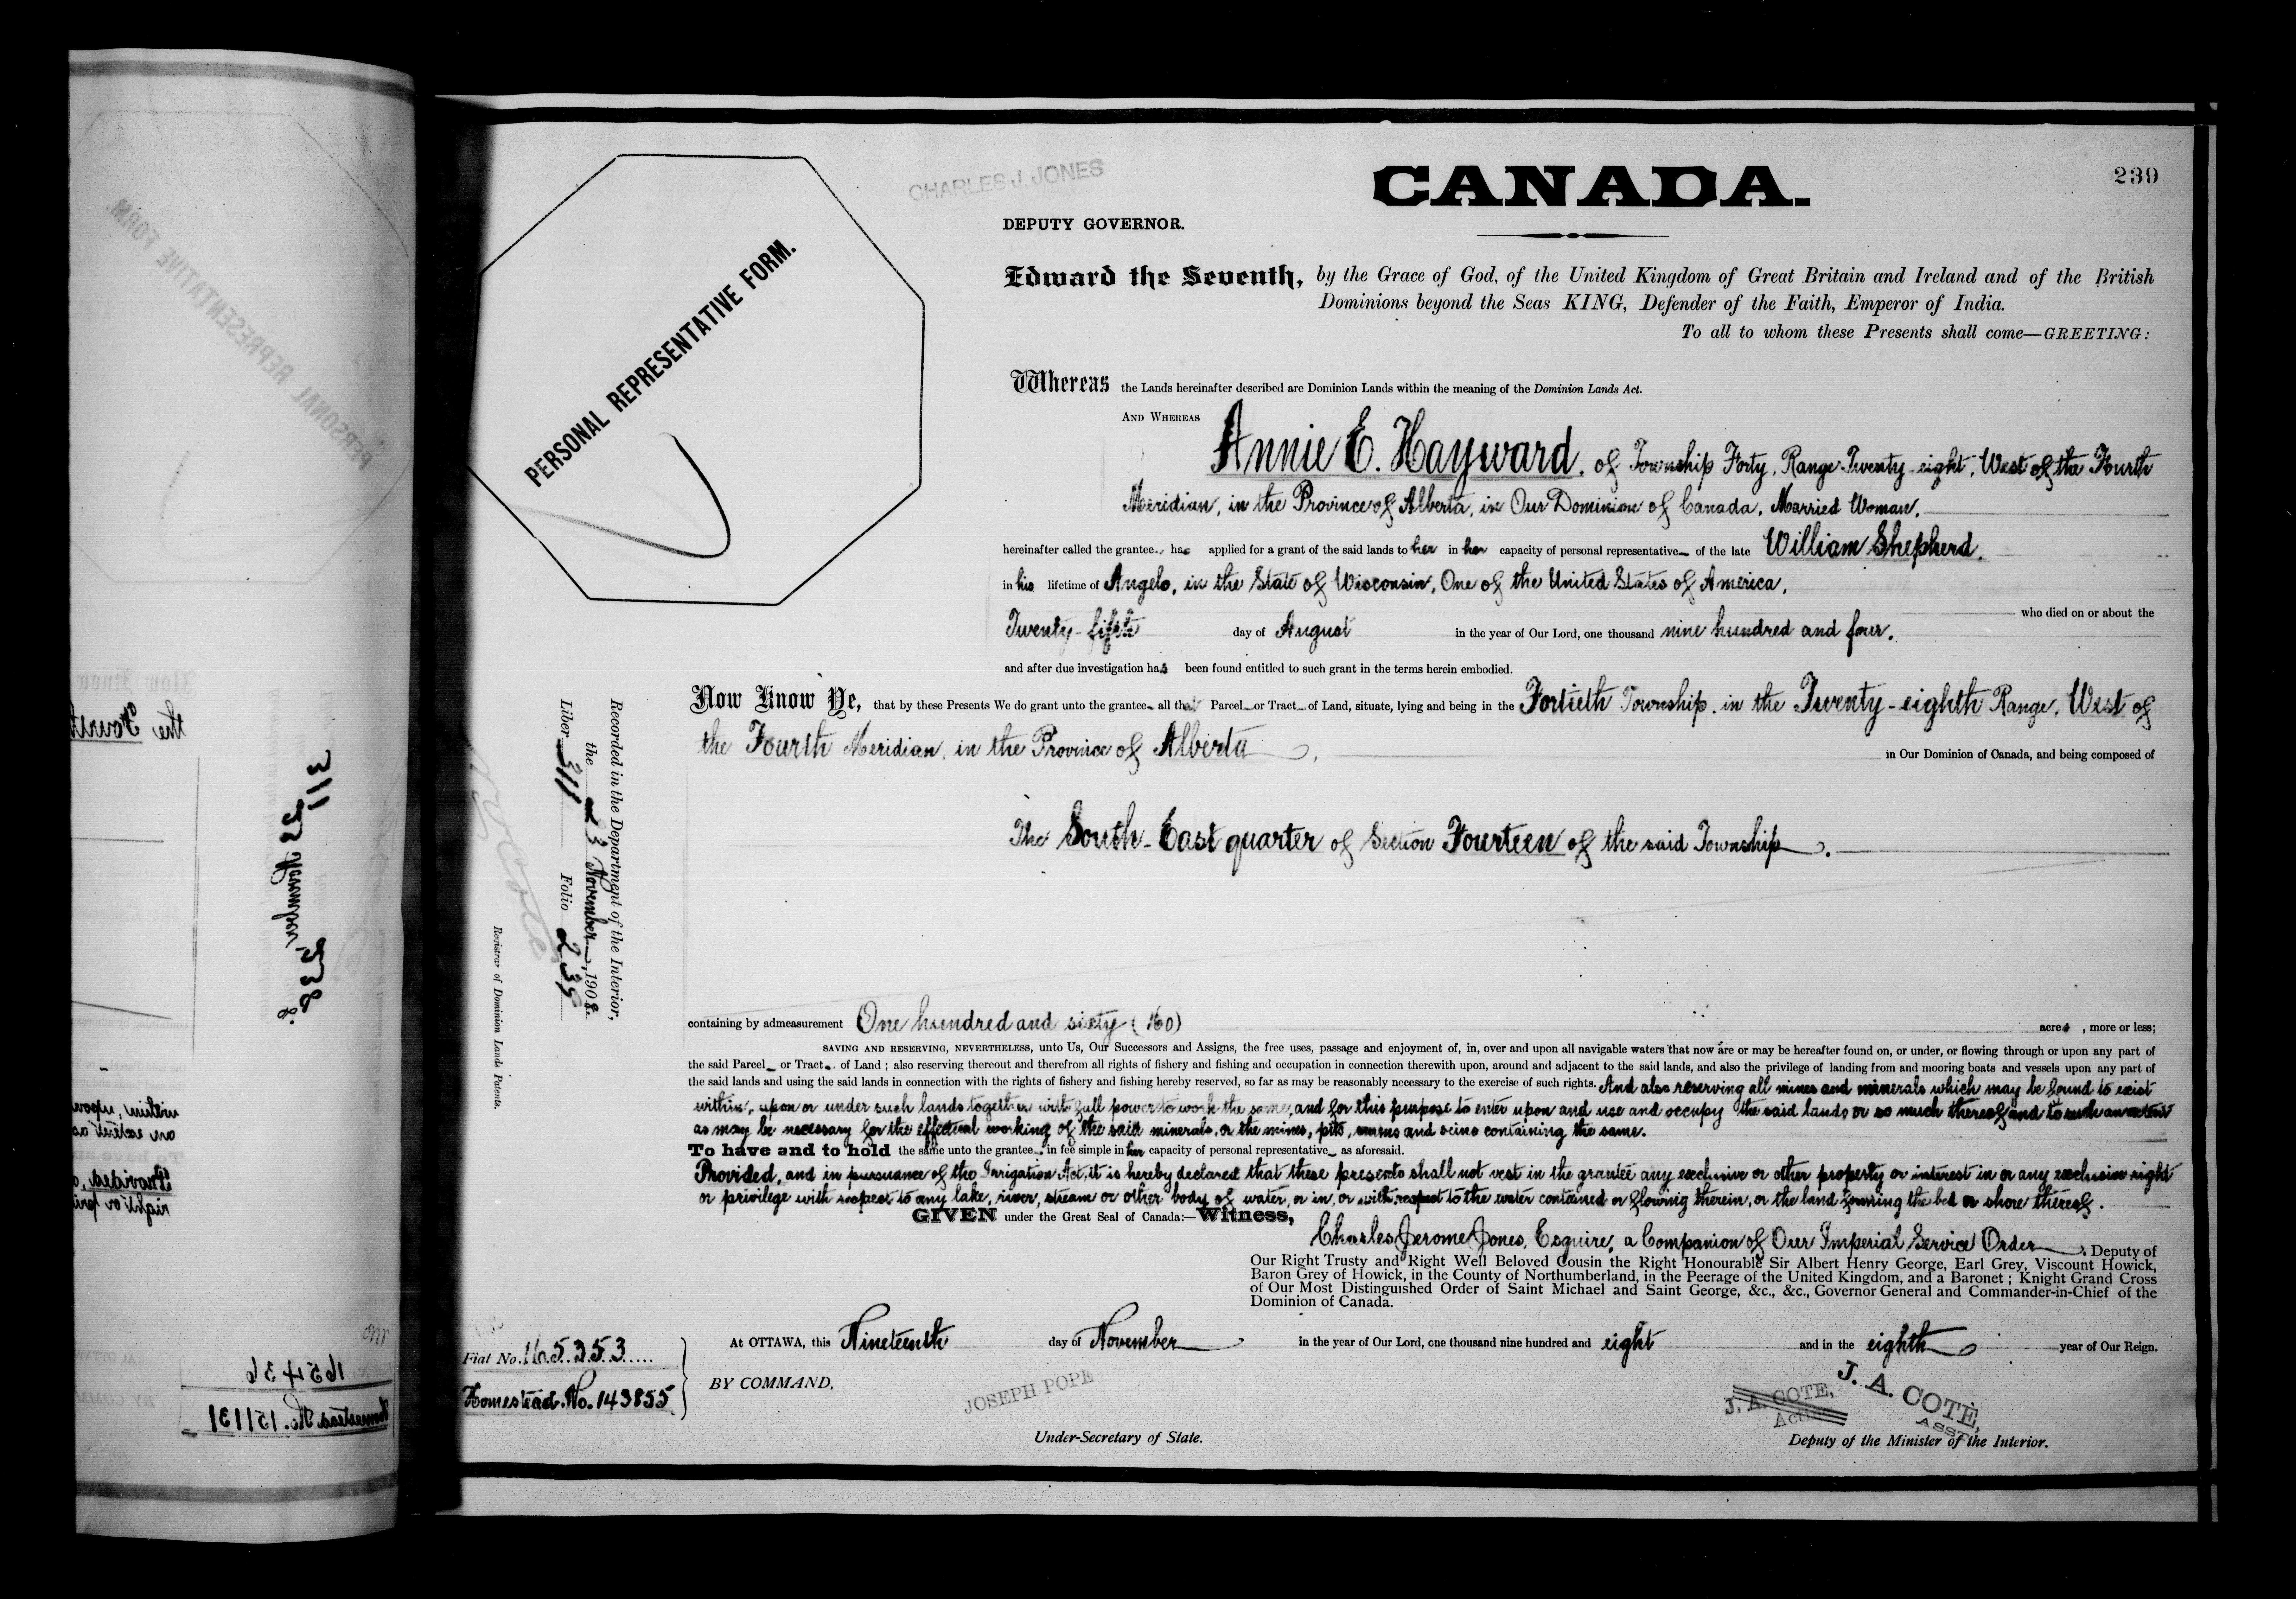 CANADA.
239
CHARLES J. JONES
DEPUTY GOVERNOR.
PERSONAL REPRESENTATIVE FORM.
Edward the Seventh, by the Grace of God, of the United Kingdom of Great Britain and Ireland and of the British
Dominions beyond the Seas KING, Defender of the Faith, Emperor of India.
To all to whom these Presents shall come—GREETING:
Whereas the Lands hereinafter described are Dominion Lands within the meaning of the Dominion Lands Act.
AND WHEREAS
Annie E. Hayward, of Township Forty, Range Twenty-eight, West of the Fourth
Meridian, in the Province of Alberta, in Our Dominion of Canada, Married Woman,
hereinafter called the grantee, has applied for a grant of the said lands to her in her capacity of personal representative of the late William Shepherd,
in his lifetime of Angelo, in the State of Wisconsin, One of the United States of America,
who died on or about the
Twenty-fifth day of August in the year of Our Lord, one thousand nine hundred and four,
and after due investigation has been found entitled to such grant in the terms herein embodied.
Now Know Ye, that by these Presents We do grant unto the grantee all that Parcel or Tract of Land, situate, lying and being in the Fortieth Township, in the Twenty-eighth Range, West of
the Fourth Meridian, in the Province of Alberta, in Our Dominion of Canada, and being composed of
The South-East quarter of Section Fourteen of the said Township.
containing by admeasurement One hundred and sixty (160) acres, more or less;
SAVING AND RESERVING, NEVERTHELESS, unto Us, Our Successors and Assigns, the free uses, passage and enjoyment of, in, over and upon all navigable waters that now are or may be hereafter found on, or under, or flowing through or upon any part of
the said Parcel or Tract of Land; also reserving thereout and therefrom all rights of fishery and fishing and occupation in connection therewith upon, around and adjacent to the said lands, and also the privilege of landing from and mooring boats and vessels upon any part of
the said lands and using the said lands in connection with the rights of fishery and fishing hereby reserved, so far as may be reasonably necessary to the exercise of such rights. And also reserving all mines and minerals which may be found to exist
within, upon or under such lands together with full power to work the same, and for this purpose to enter upon and use and occupy the said lands or so much thereof and to such an extent
as may be necessary for the effectual working of the said minerals, or the mines, pits, seams and veins containing the same.
To have and to hold the same unto the grantee in fee simple in her capacity of personal representative as aforesaid.
Provided, and in pursuance of the Irrigation Act, it is hereby declared that these presents shall not vest in the grantee any exclusive or other property or interest in or any exclusive right
or privilege with respect to any lake, river, stream or other body of water, or in, or with respect to the water contained or flowing therein, or the land forming the bed or shore thereof.
GIVEN under the Great Seal of Canada:—Witness,
Charles Jerome Jones, Esquire, a Companion of Our Imperial Service Order, Deputy of
Our Right Trusty and Right Well Beloved Cousin the Right Honourable Sir Albert Henry George, Earl Grey, Viscount Howick,
Baron Grey of Howick, in the County of Northumberland, in the Peerage of the United Kingdom, and a Baronet; Knight Grand Cross
of Our Most Distinguished Order of Saint Michael and Saint George, &c., &c., Governor General and Commander-in-Chief of the
Dominion of Canada.
At OTTAWA, this Nineteenth day of November in the year of Our Lord, one thousand nine hundred and eight and in the eighth year of Our Reign.
BY COMMAND,
JOSEPH POPE
Under-Secretary of State.
J. A. COTE,
Acting
J. A. COTE,
ASST.
Deputy of the Minister of the Interior.
Fiat No. 165353
Homestead No. 143855
Recorded in the Department of the Interior,
the 23 November, 1908.
Liber 311 Folio 239
Registrar of Dominion Lands Patents.
311
23 November
238
the Fourth
165436
Homestead No. 151131